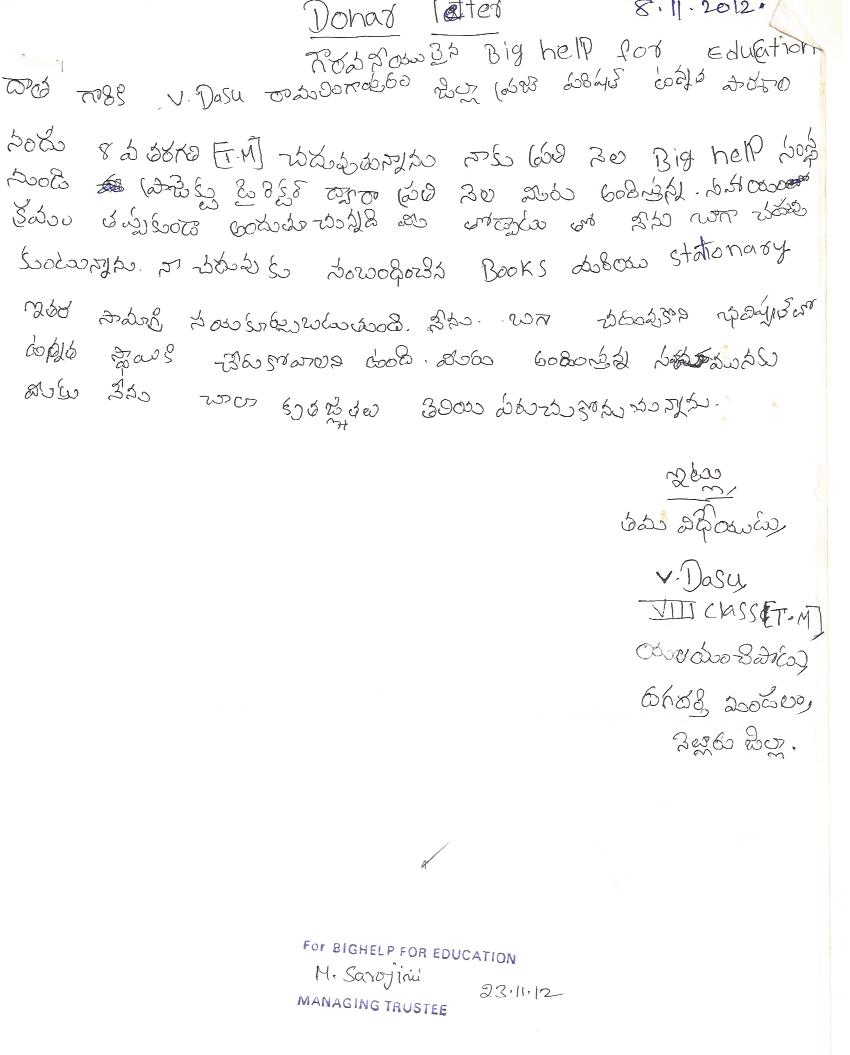 Donar letter 8.11.2012.
గౌరవనీయులైన Big help for Education
దాత గారికి V. Dasu రామలింగాపురం జిల్లా ప్రజా పరిషత్ ఉన్నత పాఠశాల
నందు 8 వ తరగతి [T.M] చదువుతున్నాను నాకు ప్రతి నెల Big help సంస్థ
నుండి ప్రాజెక్టు డైరెక్టర్ ద్వారా ప్రతి నెల మీరు అందిస్తున్న సహాయం
క్రమం తప్పకుండా అందుతూ చున్నది మీ తోడ్పాటు తో నేను బాగా చదువు
కుంటున్నాను. నా చదువు కు సంబంధించిన Books మరియు stationary
ఇతర సామాగ్రి సమకూర్చబడుతుంది. నేను. బాగా చదువుకొని భవిష్యత్ లో
ఉన్నత స్థాయికి చేరుకోవాలని ఉంది. మీరు అందిస్తున్న
మీకు నేను చాలా కృతజ్ఞతలు తెలియ పరుచుకొనుచున్నాను.
ఇట్లు
తమ విధేయుడు,
V. Dasu,
VIII Class [T.M]
యలమంచిపాడు,
దగదర్తి మండలం,
నెల్లూరు జిల్లా.
For BIGHELP FOR EDUCATION
M. Sarojini 23.11.12
MANAGING TRUSTEE